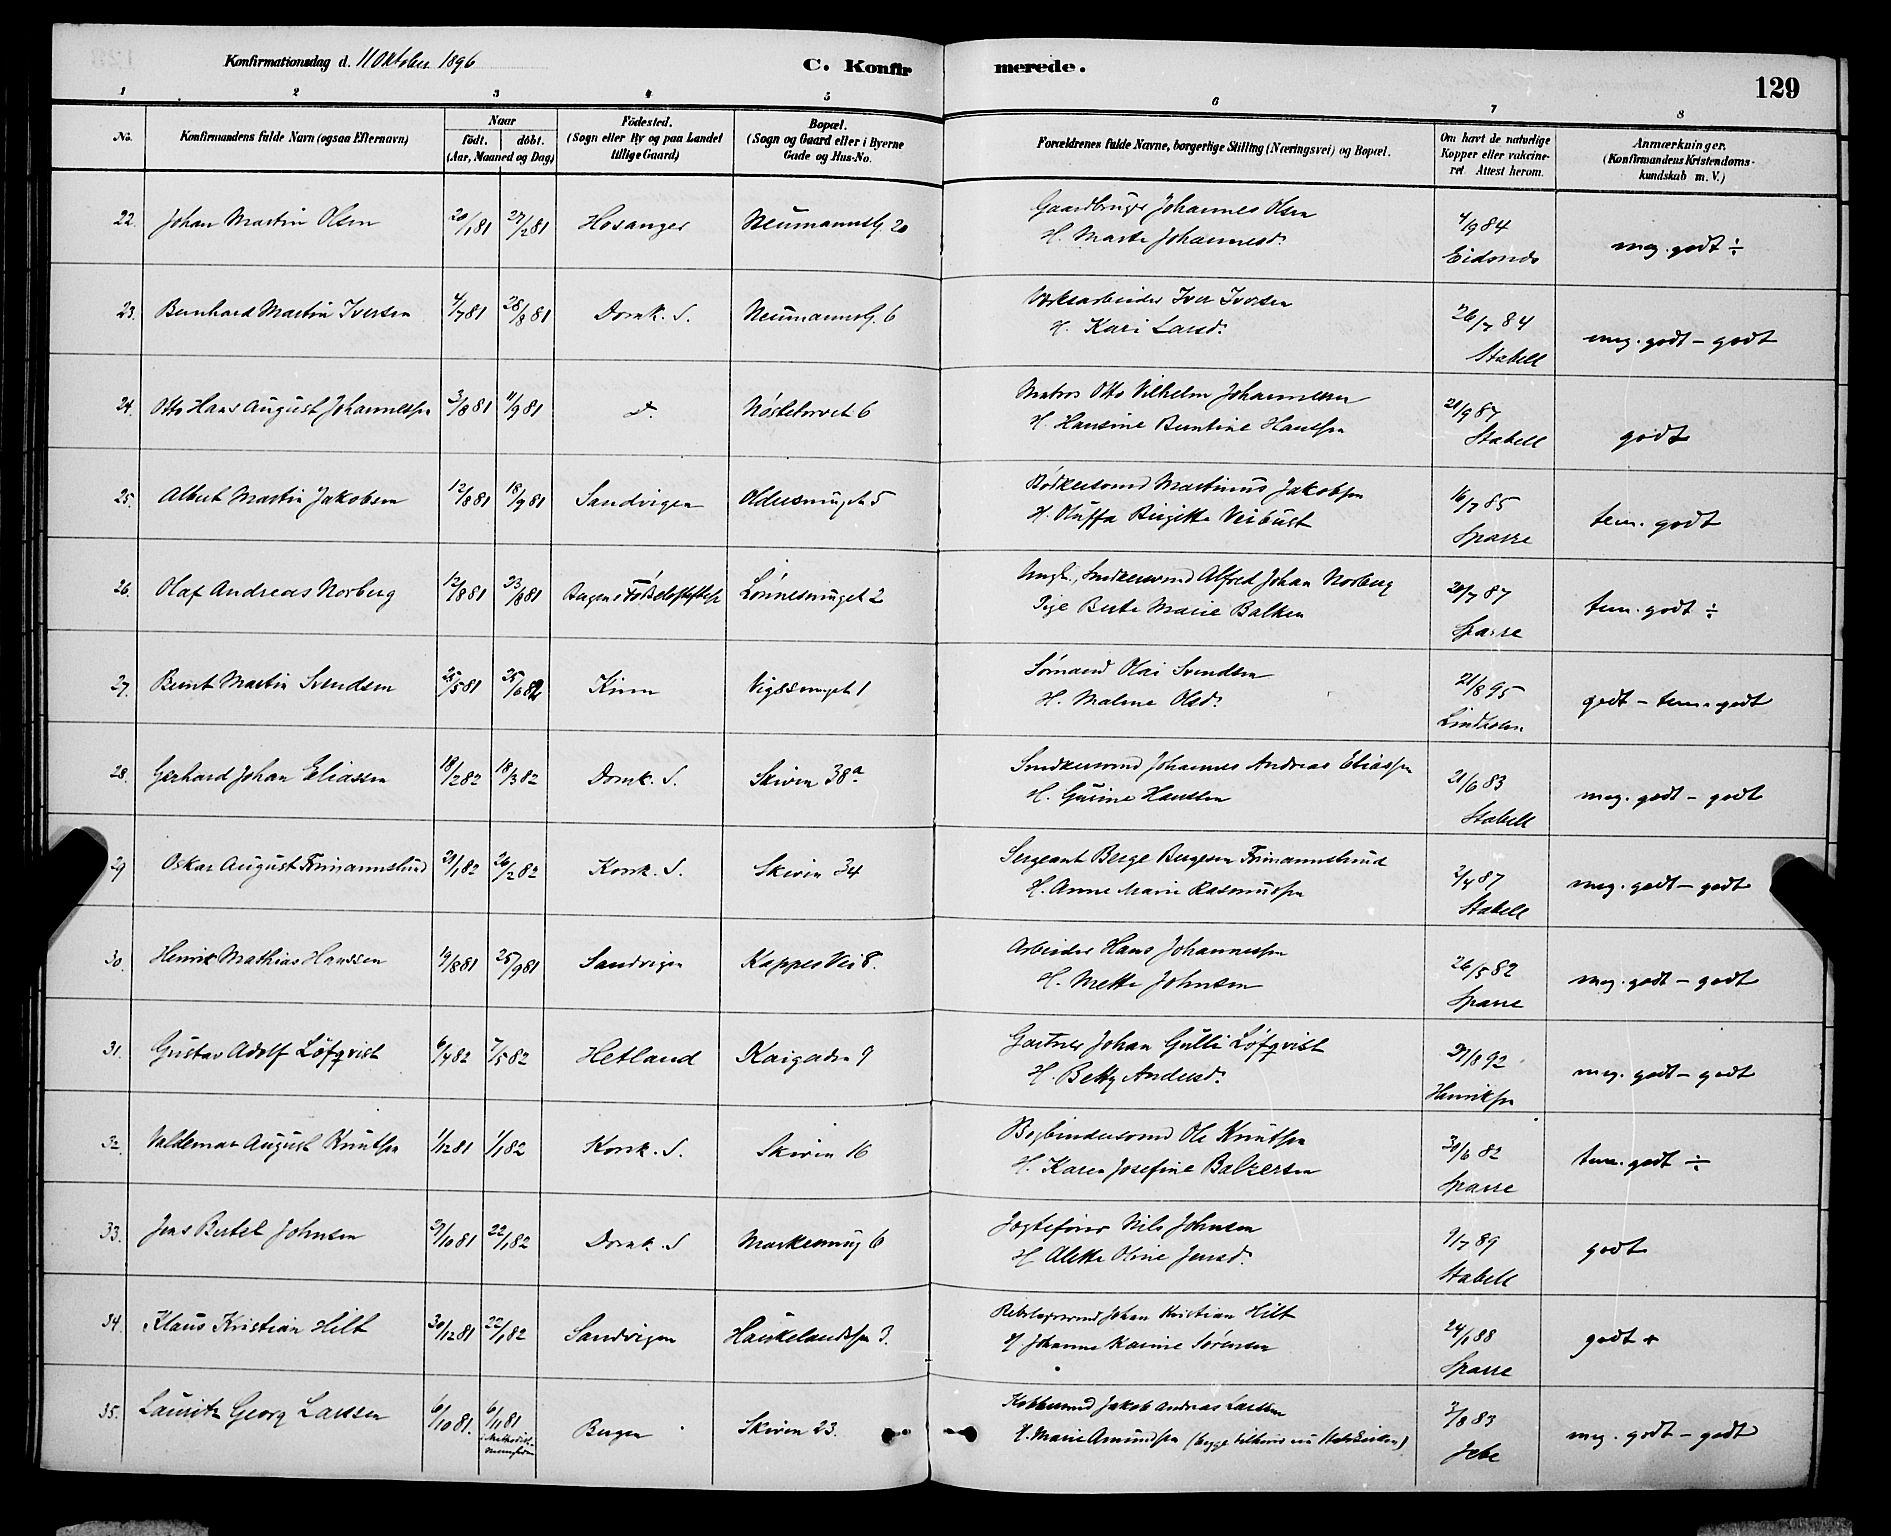 Konfirmationsdag d. 11 Oktober 1896 C. Konfirmerede. 129
1 2 3 4 5 6 7 8
No. Konfirmandens fulde Navn (ogsaa Efternavn) Naar født. døbt. (Aar, Maaned og Dag) Fødested. (Sogn eller By og paa Landet tillige Gaard) Bopæl. (Sogn og Gaard eller i Byerne Gade og Hus-No. Forældrenes fulde Navne, borgerlige Stilling (Næringsvei) og Bopæl. Om havt de naturlige Kopper eller vakcineret. Attest herom. Anmærkninger. (Konfirmandens Kristendomskundskab m. V.)
22. Johan Martin Olsen 20/1 81 27/2 81 Hosanger Neumannsg 20 Gaardbruger Johannes Olsen 4/9 84
H. Marte Johannesd. Eidonds meg. godt ÷
23. Bernhard Martin Iversen 4/7 81 28/8 81 Domk. S. Neumannsg. 6 Værksarbeider Iver Iversen 26/7 84
H. Kari Larsd. Stabell meg. godt - godt
24. Otto Hans August Johannessen 3/8 81 11/9 81 d. Nøstetorvet 6 Matros Otto Vilhelm Johannesen 21/9 87
H. Hansine Bentine Hanssen Stabell godt
25. Albert Martin Jakobsen 12/8 81 18/9 81 Sandvigen Oldersmuget 5 Bødkersvend Martinus Jakobsen 16/7 85
H. Oluffa Birgitte Veibust Sparre tem. godt
26. Olaf Andreas Norberg 12/8 81 23/8 81 Bergens Fødselsstiftelse Lønnesmuget 2 Ungk., Snedkersvend Alfred Johan Norberg 20/7 87
Pige Berte Marie Balken Sparre tem. godt ÷
27. Bernt Martin Svendsen 25/5 81 25/6 82 Kinn Vigesmuget 1 Sømand Olai Svendsen 21/8 95
H. Malene Olsd. Lindholm godt - tem. godt
28. Gerhard Johan Eliassen 18/2 82 18/3 82 Domk. S. Skiven 38a Snedkersvend Johannes Andreas Eliassen 21/6 83
H. Gurine Hanssen Stabell meg. godt - godt
29 Oskar August Frimannslund 21/1 82 26/2 82 Korsk. S. Skiven 34 Sergeant Berge Bergesen Frimannslund 2/4 87
H. Anne Marie Rasmussen Stabell meg. godt - godt
30. Henrik Mathias Hanssen 19/8 81 25/9 81 Sandvigen Kappes Vei 8. Arbeider Hans Johannessen 26/5 82
H. Mette Johnsen Sparre meg. godt - godt
31. Gustav Adolf Løfqvist 6/4 82 7/5 82 Hetland Kaigaden 9 Gartner Johan Gulli Løfqvist 31/8 92
H. Betty Andersd. Henriksen meg. godt - godt
32. Valdemar August Knutsen 1/12 81 1/1 82 Korsk. S. Skiven 16 Bogbindersvend Ole Knutsen 30/6 82
H. Karen Josefine Balzersen Sparre tem. godt ÷
33. Jens Bertel Johnsen 31/10 81 22/1 82 Domk. S Markesmug 6 Jægtefører Nils Johnsen 9/7 89
H Alette Oline Jensd. Stabell godt
34. Klaus Kristian Hilt 30/12 81 22/1 82 Sandvigen Haukelandssn 3. Rebslagersvend Johan Kristian Hilt 24/1 88
H Johanne Karine Sørensen Sparre godt +
35. Lauritz Georg Larssen 6/10 81. 6/11 81 i Methodistmenigheden Bergen Skiven 23. Kobbersmed Jakob Andreas Larssen 3/8 83
H. Marie Amundsen (begge tilhører nu Statskirken) Jebe meg. godt - godt